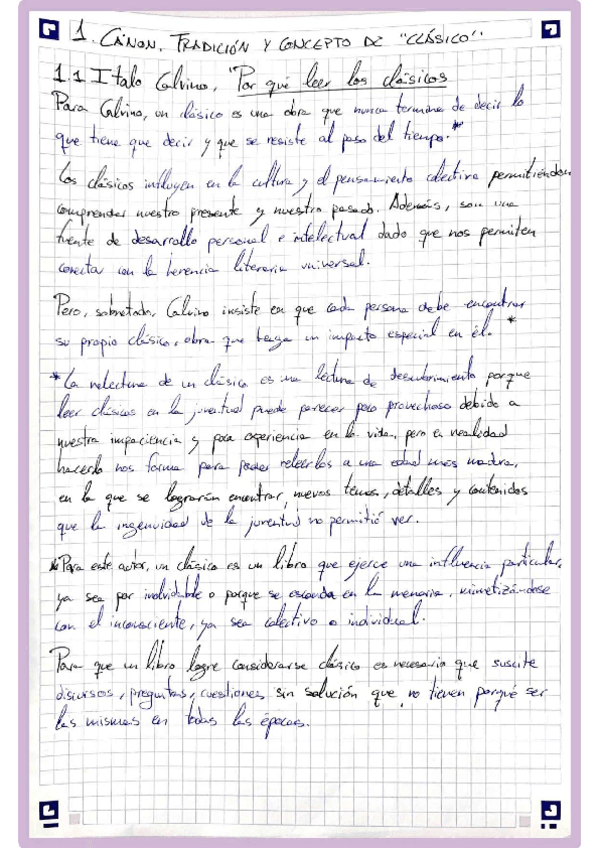 1. CÁNON, TRADICIÓN Y CONCEPTO DE "CLÁSICO".
1.1 Italo Calvino, "Por qué leer los clásicos
Para Calvino, un clásico es una obra que nunca termina de decir lo
que tiene que decir y que se resiste al paso del tiempo.*
Los clásicos influyen en la cultura y el pensamiento colectivo permitiéndon
comprender nuestro presente y nuestro pasado. Además, son una
fuente de desarrollo personal e intelectual dado que nos permiten
conectar con la herencia literaria universal.
Pero, sobretodo, Calvino insiste en que cada persona debe encontrar
su propio clásico, obra que tenga un impacto especial en él. *
*La relectura de un clásico es una lectura de descubrimiento porque
leer clásicos en la juventud puede parecer poco provechoso debido a
nuestra impaciencia y poca experiencia en la vida, pero en realidad
hacerlo nos forma para poder releerlos a una edad más madura,
en la que se lograrán encontrar nuevos temas, detalles y contenidos
que la ingenuidad de la juventud no permitió ver.
*Para este autor, un clásico es un libro que ejerce una influencia particular,
ya sea por inolvidable o porque se esconda en la memoria, mimetizándose
con el inconsciente, ya sea colectivo o individual.
Para que un libro logre considerarse clásico es necesario que suscite
discursos, preguntas, cuestiones sin solución que no tienen porqué ser
las mismas en todas las épocas.